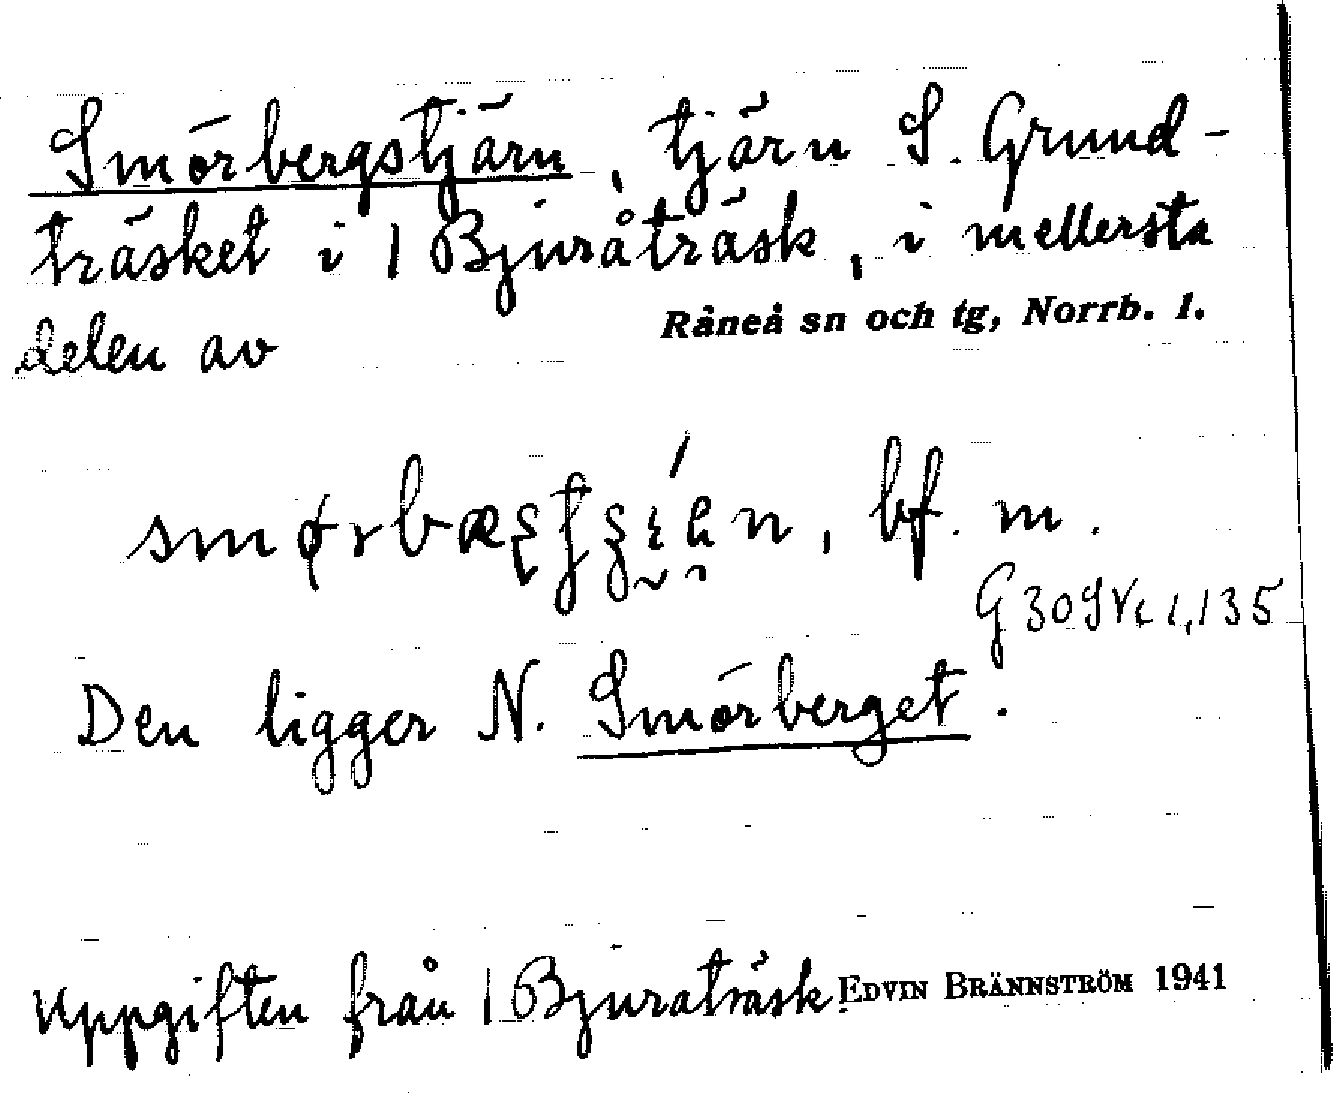 Smörbergstjärn, tjärn S. Grund-
träsket i 1 Bjuråträsk, i mellersta
delen av Råneå sn och tg, Norrb. l.
bf. m.
Den ligger N. Smörberget.
Uppgiften från 1 Bjuråträsk EDVIN BRÄNNSTRÖM 1941